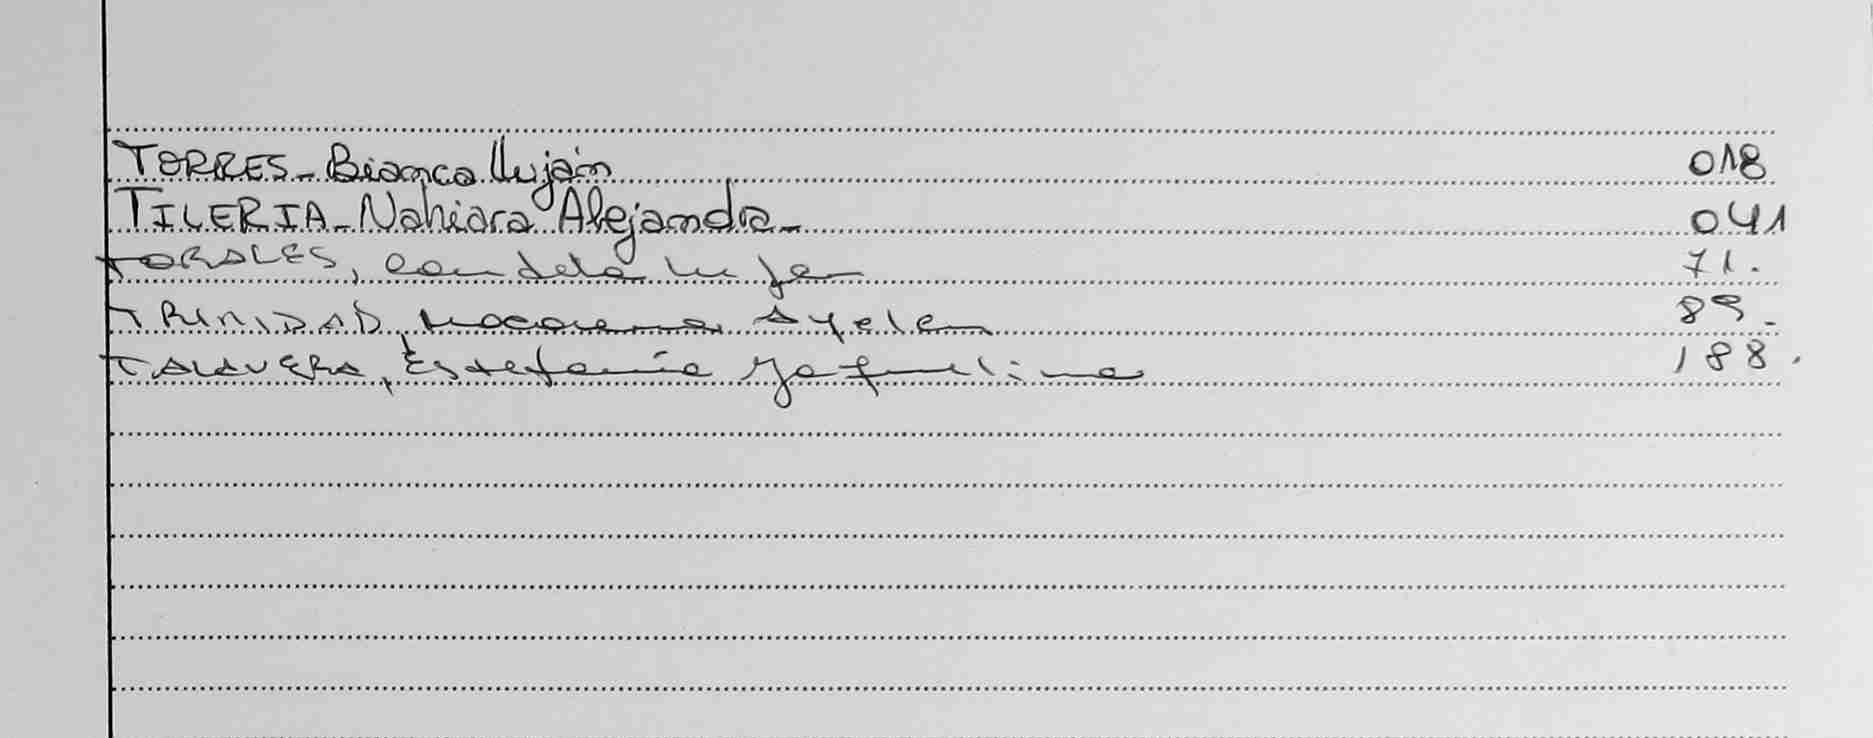 TORRES - Bianca Luján 018
TILERIA - Nahiara Alejandra - 041
TORALES, Candela Lujan 71.
TRINIDAD, Macarena Ayelen 89_
TALAVERA, Estefanía Jaquelina 188.